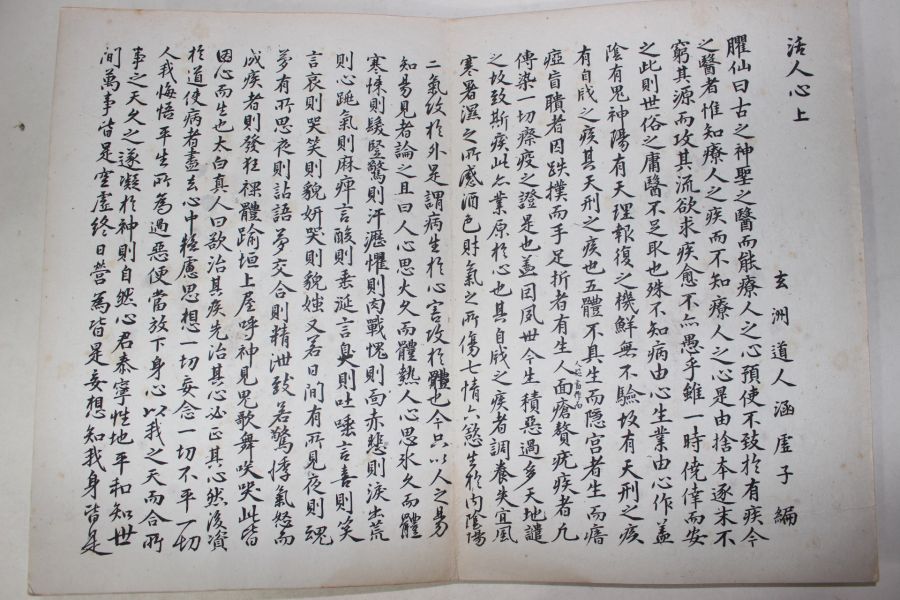 活人心上
玄洲道人涵虛子編
臞仙曰古之神聖之醫而能療人之心預使不致於有疾今
之醫者惟知療人之疾而不知療人之心是由捨本逐末不
窮其源而攻其流欲求疾愈不亦愚乎雖一時僥倖而安
之此則世俗之庸醫不足取也殊不知病由心生業由心作盖
陰有鬼神陽有天理報復之機鮮無不驗故有天刑之疾
有自戕之疾其天刑之疾也五體不具生而隱宮者生而瘖
瘂盲聵者因跌撲而手足折者有生人面瘡贅疣疾者凡
傳染一切瘵疫之證是也盖因夙世今生積惡過多天地譴
之故致斯疾此亦業原於心也其自戕之疾者調養失宜風
寒暑濕之所感酒色財氣之所傷七情六慾生於內陰陽
二氣攻於外是謂病生於心害攻於體也今只以人之易
知易見者論之且曰人心思火久而體熱人心思氷久而體
寒悚則髮竪驚則汗瀝懼則肉戰愧則面赤悲則淚出荒
則心跳氣則麻痺言酸則垂涎言臭則吐唾言喜則笑
言哀則哭笑則貌妍哭則貌媸又若日間有所見夜則魂
夢有所思夜則詀語夢交合則精泄致若驚悸氣怒而
成疾者則發狂裸體踰垣上屋呼神見鬼歌舞咲哭此皆
因心而生也太白真人曰欲治其疾先治其心必正其心然後資
於道使病者盡去心中疑慮思想一切妄念一切不平一切
人我悔悟平生所爲過惡便當放下身心以我之天而合所
事之天久之遂凝於神則自然心君泰寧性地平和知世
間萬事皆是空虛終日營爲皆是妄想知我身皆是